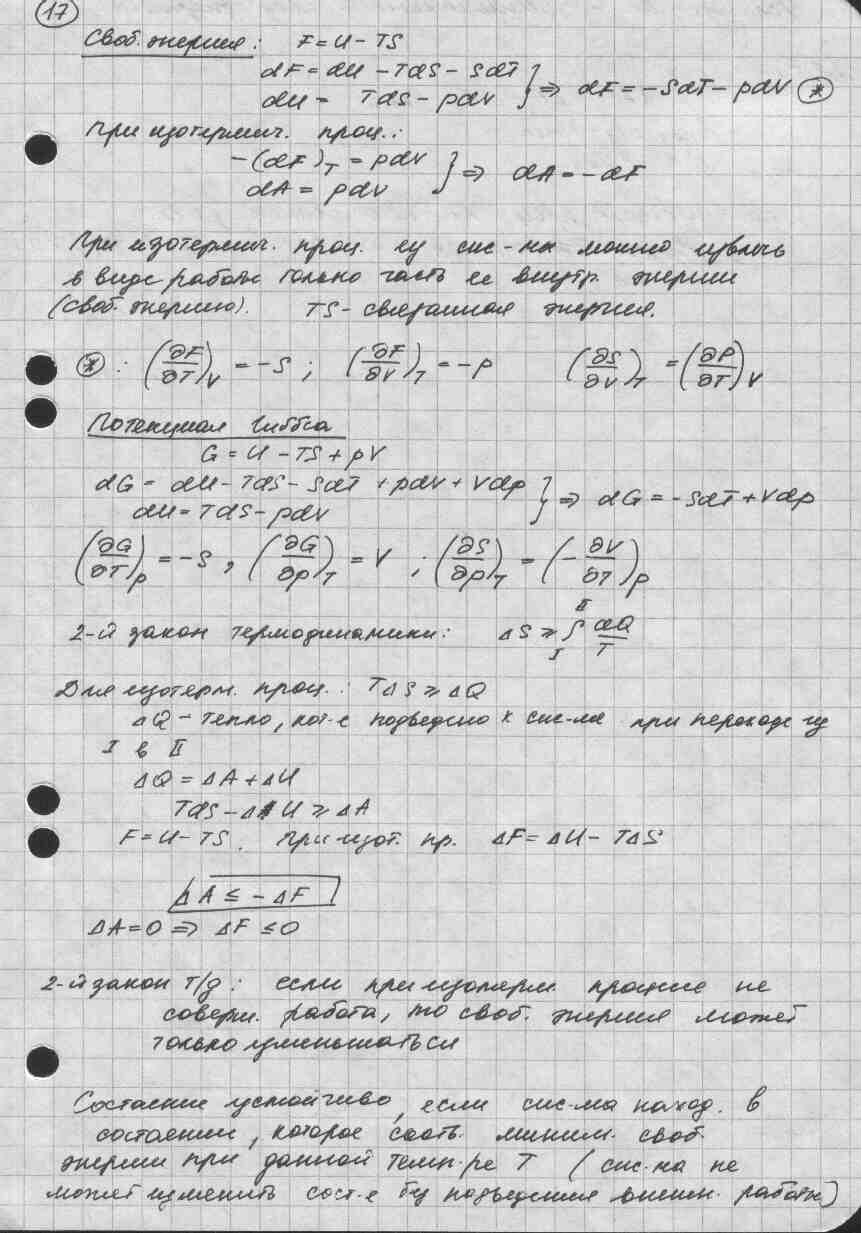 17
Своб. энергия: F = U − TS
dF = dU − TdS − SdT
dU = TdS − pdV } ⇒ dF = −SdT − pdV (*)
При изотермич. проц.:
−(dF)_T = pdV
dA = pdV } ⇒ dA = −dF
При изотермич. проц. из сис-мы можно извлечь
в виде работы только часть ее внутр. энергии
(своб. энергию). TS – связанная энергия.
(*) : (∂F/∂T)_V = −S ; (∂F/∂V)_T = −p (∂S/∂V)_T = (∂P/∂T)_V
Потенциал Гиббса
G = U − TS + pV
dG = dU − TdS − SdT + pdV + Vdp
dU = TdS − pdV } ⇒ dG = −SdT + Vdp
(∂G/∂T)_p = −S , (∂G/∂p)_T = V ; (∂S/∂p)_T = (−∂V/∂T)_p
2-й закон термодинамики: ΔS ≥ ∫_I^II dQ/T
Для изотерм. проц.: TΔS ≥ ΔQ
ΔQ – тепло, кот-е подведено к сис-ме при переходе из
I в II
ΔQ = ΔA + ΔU
TdS − ΔU ≥ ΔA
F = U − TS. При изот. пр. ΔF = ΔU − TΔS
ΔA ≤ −ΔF
ΔA = 0 ⇒ ΔF ≤ 0
2-й закон т/д: если при изотерм. не
соверш. работа, то своб. энергия может
только уменьшаться
Состояние устойчиво, если сис-ма наход. в
состоянии, которое соотв. миним. своб.
энергии при данной темп-ре T (сис-ма не
может изменить сост-е без подведения внешн. работы)